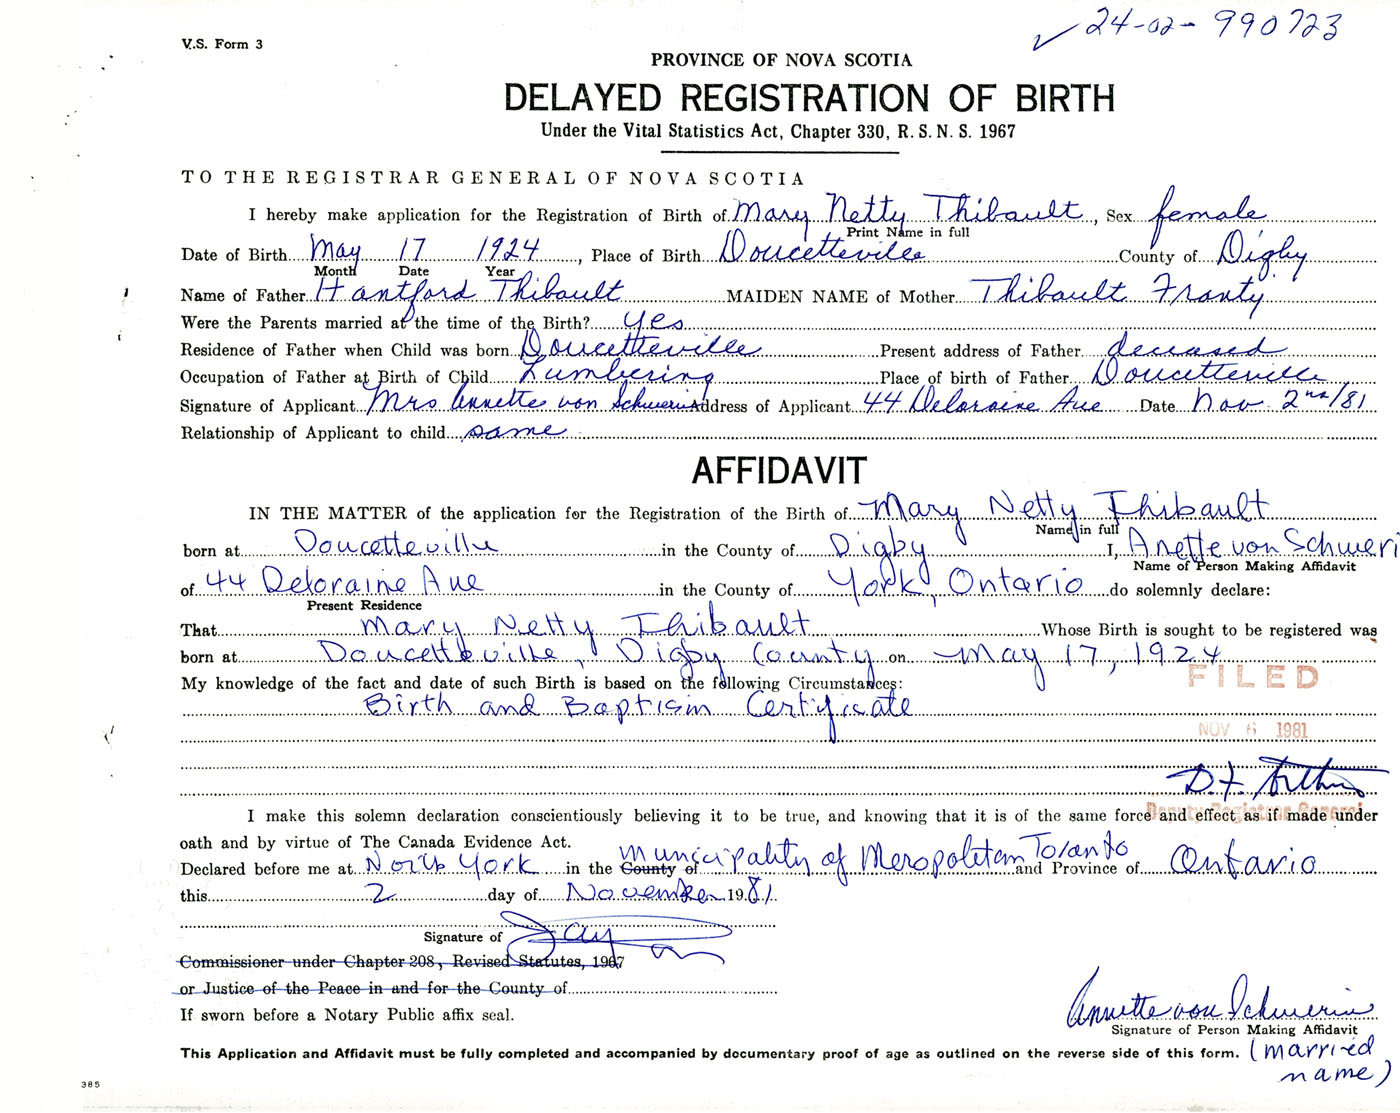 24-02-990723
V.S. Form 3
PROVINCE OF NOVA SCOTIA
DELAYED REGISTRATION OF BIRTH
Under the Vital Statistics Act, Chapter 330, R.S.N.S. 1967
TO THE REGISTRAR GENERAL OF NOVA SCOTIA
I hereby make application for the Registration of Birth of Mary Netty Thibault, Sex female
Print Name in full
Date of Birth May 17 1924, Place of Birth Doucetteville County of Digby
Month Date Year
Name of Father Hantford Thibault MAIDEN NAME of Mother Thibault Franty
Were the Parents married at the time of the Birth? yes
Residence of Father when Child was born Doucetteville Present address of Father deceased
Occupation of Father at Birth of Child Lumbering Place of birth of Father Doucetteville
Signature of Applicant Mrs Annette von Schwerin Address of Applicant 44 Deloraine Ave Date Nov. 2nd/81
Relationship of Applicant to child same
AFFIDAVIT
IN THE MATTER of the application for the Registration of the Birth of Mary Netty Thibault
Name in full
born at Doucetteville in the County of Digby I, Anette von Schweri
Name of Person Making Affidavit
of 44 Deloraine Ave in the County of York, Ontario do solemnly declare:
Present Residence
That Mary Netty Thibault Whose Birth is sought to be registered was
born at Doucetteville, Digby County on May 17, 1924
FILED
My knowledge of the fact and date of such Birth is based on the following Circumstances:
Birth and Baptism Certificate
NOV 6 1981
D.F. Arthur
Deputy Registrar General
I make this solemn declaration conscientiously believing it to be true, and knowing that it is of the same force and effect as if made under
oath and by virtue of The Canada Evidence Act.
Declared before me at North York in the County of Municipality of Meropolitan Toronto and Province of Ontario
this 2 day of November 1981
Signature of
Commissioner under Chapter 208, Revised Statutes, 1967
or Justice of the Peace in and for the County of
If sworn before a Notary Public affix seal.
Annette von Schwerin
Signature of Person Making Affidavit
This Application and Affidavit must be fully completed and accompanied by documentary proof of age as outlined on the reverse side of this form. (married
name)
385